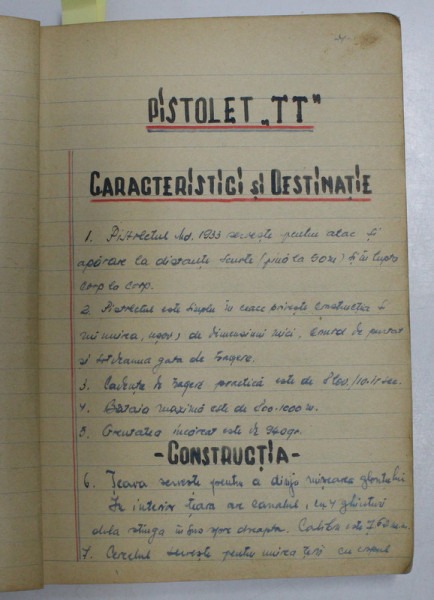 PISTOLET „TT"
CARACTERISTICI și DESTINAȚIE
1. Pistoletul Md. 1933 servește pentru atac și
apărare la distanțe scurte (pînă la 50 m) și în lupta
corp la corp.
2. Pistoletul este simplu în ceace privește construcția și
mînuirea, ușor, de dimensiuni mici, comod de purtat
și totdeauna gata de tragere.
3. Cadența de tragere practică este de 8 lov./10-15 sec.
4. Bătaia maximă este de 800-1000 m.
5. Greutatea încărcat este de 940 gr.
-CONSTRUCȚIA-
6. Țeava servește pentru a dirija mișcarea glontelui
În interior țeava are canalul, cu 4 ghinturi
dela stînga în sus spre dreapta. Calibru este 7,62 m.m.
7. Cercelul servește pentru unirea țevi cu